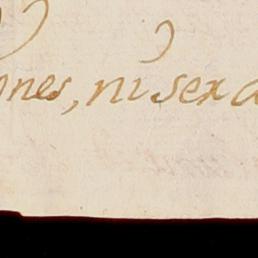 nes, ni sex a